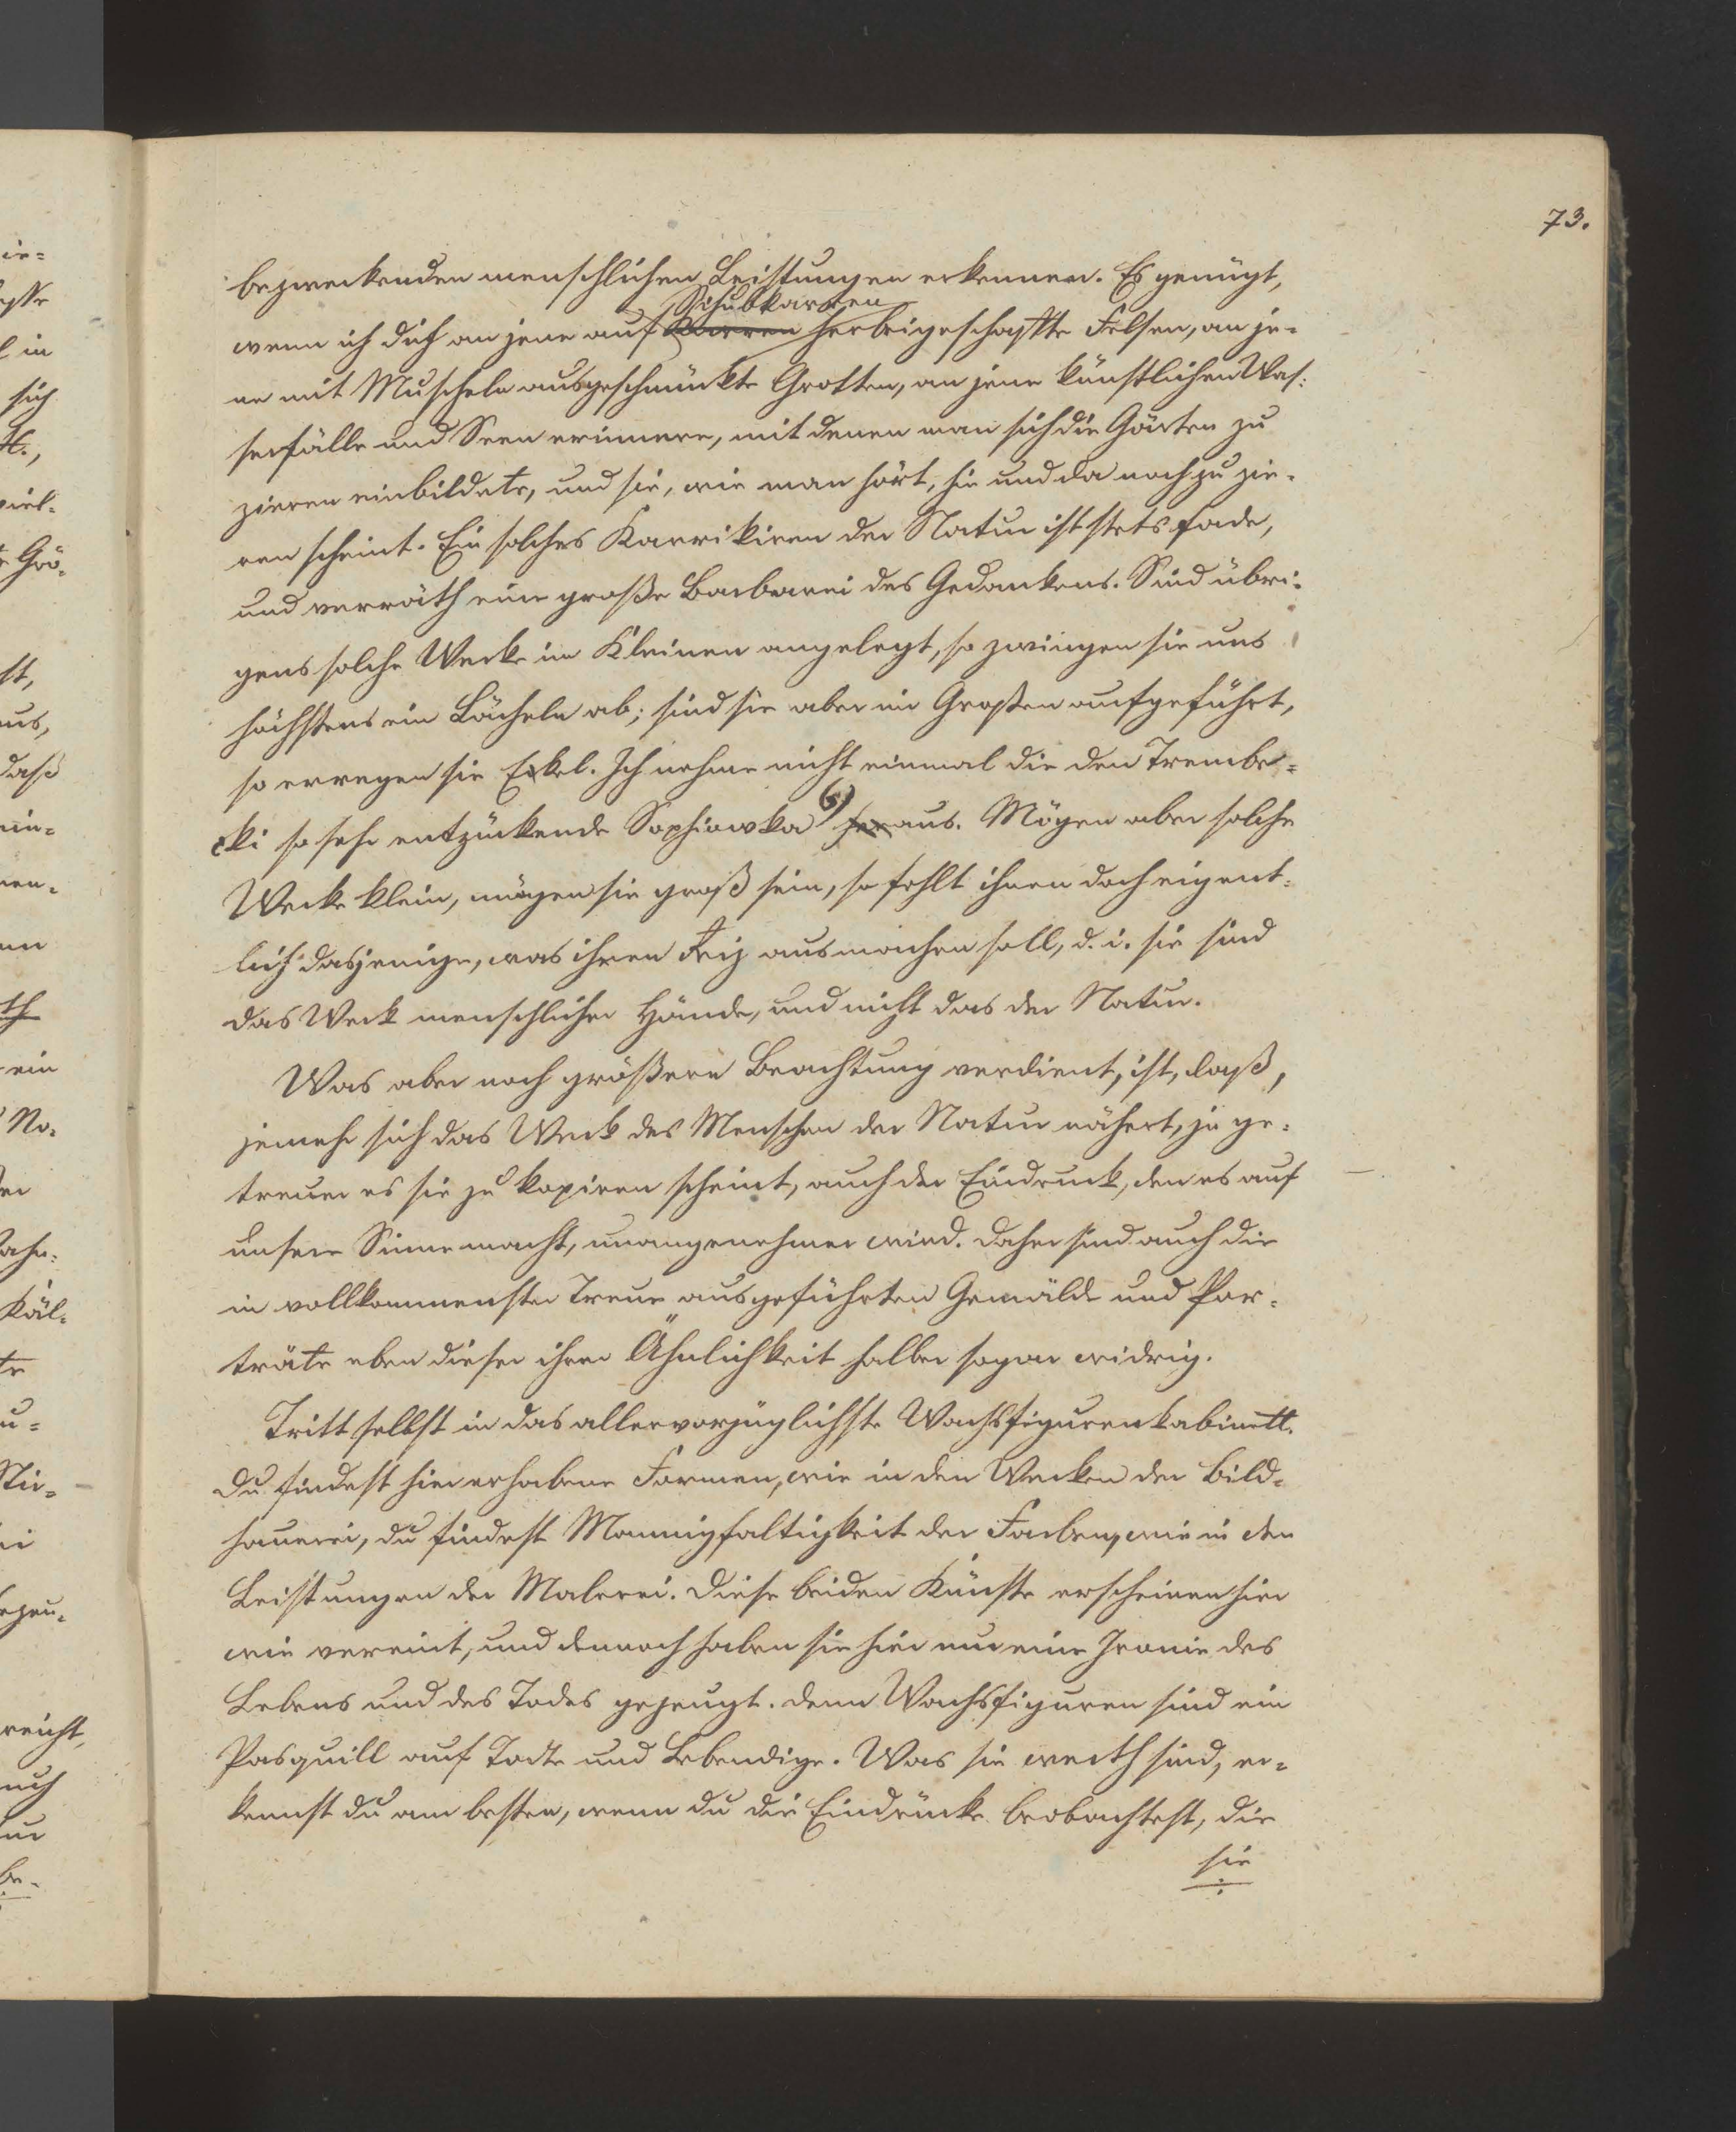 73.
bezweckenden menschlichen Leistungen erkennen. Es genügt,
Schubkarren
wenn ich dich an jene auf Karren herbeigeschaffte Felsen, an je-
ne mit Muscheln ausgeschmückte Grotten, an jene künstlichen Was-
serfälle und Seen erinnere, mit denen man sich die Gärten zu
zieren einbildete, und sie, wie man hört, hie und da noch zu zie-
ren scheint. Ein solches Karrikiren der Natur ist stets fade,
und verräth eine große Barbarei des Gedankens. Sind übri-
gens solche Werke im Kleinen angelegt, so zwingen sie uns
höchstens ein Lächeln ab; sind sie aber im Großen aufgeführt,
so erregen sie Ekel. Ich nehme nicht einmal die den Trembe-
cki so sehr entzückende Sophiowka 6) her aus. Mögen aber solche
Werke klein, mögen sie groß sein, so fehlt ihnen doch eigent-
lich dasjenige, was ihren Reiz ausmachen soll, d. i. sie sind
das Werk menschlicher Hände, und nicht das der Natur.
Was aber noch größere Beachtung verdient, ist, daß,
jemehr sich das Werk des Menschen der Natur nähert, je ge-
treuer es sie zu kopiren scheint, auch der Eindruck, den es auf
unsere Sinne macht, unangenehmer wird. Daher sind auch die
in vollkommenster Treue ausgeführten Gemälde und Por-
träte eben dieser ihrer Ähnlichkeit halber sogar widrig.
Tritt selbst in das allervorzüglichste Wachsfigurenkabinett.
Du findest hier erhabene Formen, wie in den Werken der Bild-
hauerei, du findest Mannigfaltigkeit der Farben, wie in den
Leistungen der Malerei. Diese beiden Künste erscheinen hier
wie vereint, und dennoch haben sie hier nur eine Ironie des
Lebens und des Todes gezeugt. Denn Wachsfiguren sind ein
Pasquill auf Todte und Lebendige. Was sie werth sind, er-
kennst du am besten, wenn du die Eindrücke beobachtest, die
sie